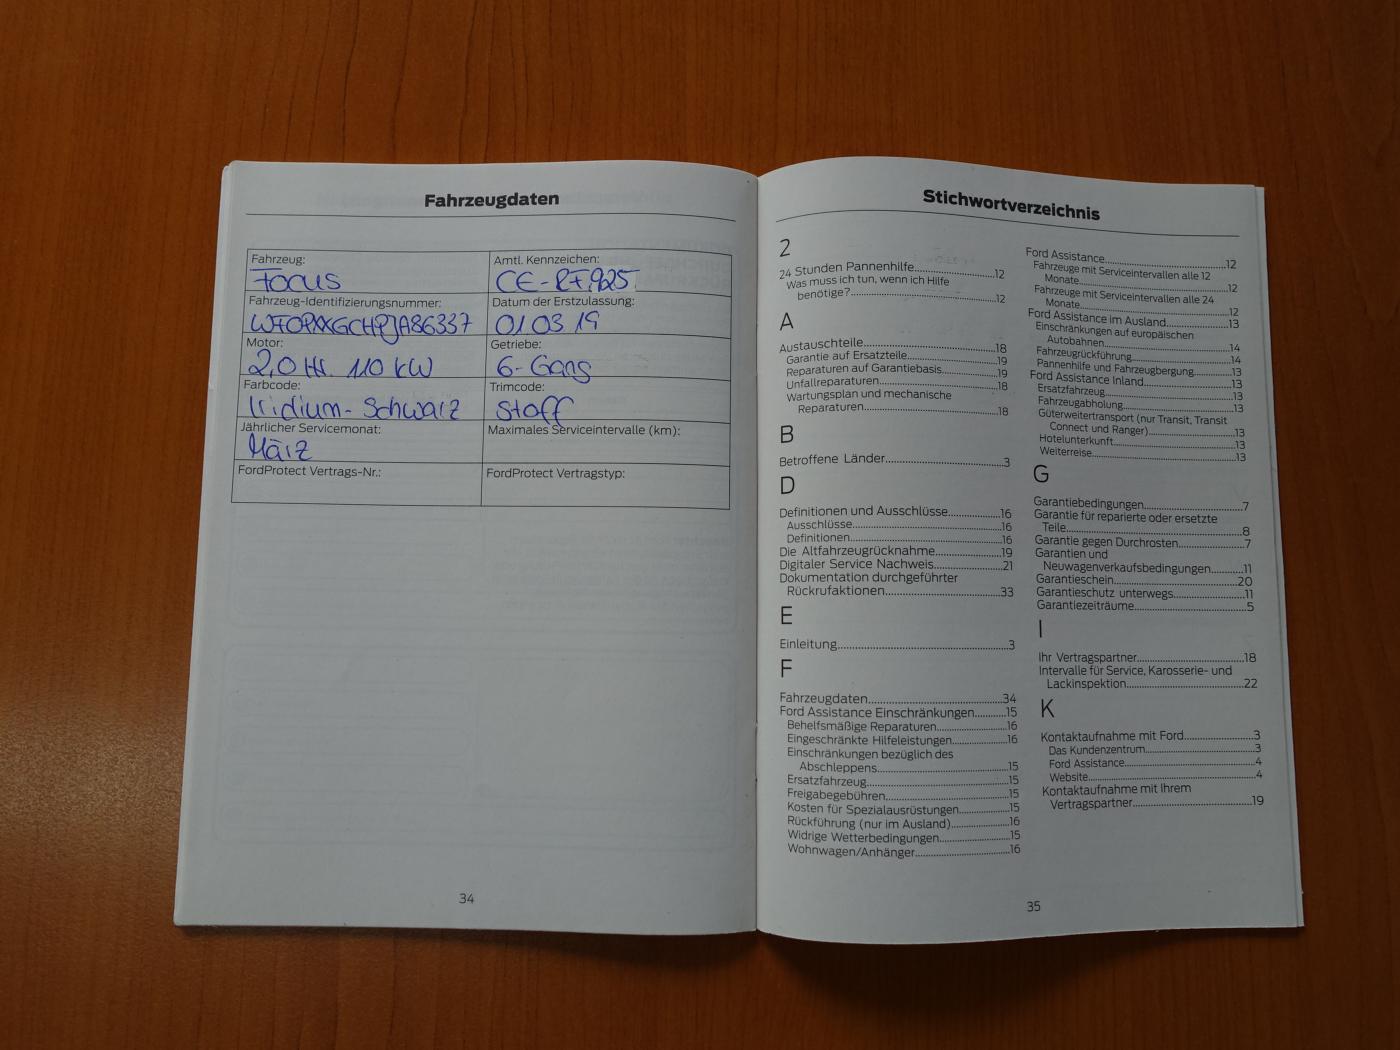 Fahrzeugdaten
Fahrzeug:
Focus
Amtl. Kennzeichen:
CE-RF925
Fahrzeug-Identifizierungsnummer:
WF0PXXGCHPJA86337
Datum der Erstzulassung:
01 03 19
Motor:
2,0 ltr. 110 kW
Getriebe:
6-Gang
Farbcode:
Iridium-Schwarz
Trimcode:
Stoff
Jährlicher Servicemonat:
März
Maximales Serviceintervalle (km):
FordProtect Vertrags-Nr.:
FordProtect Vertragstyp:
34
Stichwortverzeichnis
2
24 Stunden Pannenhilfe...12
Was muss ich tun, wenn ich Hilfe
benötige?...12
A
Austauschteile...18
Garantie auf Ersatzteile...19
Reparaturen auf Garantiebasis...19
Unfallreparaturen...18
Wartungsplan und mechanische
Reparaturen...18
B
Betroffene Länder...3
D
Definitionen und Ausschlüsse...16
Ausschlüsse...16
Definitionen...16
Die Altfahrzeugrücknahme...19
Digitaler Service Nachweis...21
Dokumentation durchgeführter
Rückrufaktionen...33
E
Einleitung...3
F
Fahrzeugdaten...34
Ford Assistance Einschränkungen...15
Behelfsmäßige Reparaturen...16
Eingeschränkte Hilfeleistungen...16
Einschränkungen bezüglich des
Abschleppens...15
Ersatzfahrzeug...15
Freigabegebühren...15
Kosten für Spezialausrüstungen...15
Rückführung (nur im Ausland)...16
Widrige Wetterbedingungen...15
Wohnwagen/Anhänger...16
Ford Assistance...12
Fahrzeuge mit Serviceintervallen alle 12
Monate...12
Fahrzeuge mit Serviceintervallen alle 24
Monate...12
Ford Assistance im Ausland...13
Einschränkungen auf europäischen
Autobahnen...14
Fahrzeugrückführung...14
Pannenhilfe und Fahrzeugbergung...13
Ford Assistance Inland...13
Ersatzfahrzeug...13
Fahrzeugabholung...13
Güterweitertransport (nur Transit, Transit
Connect und Ranger)...13
Hotelunterkunft...13
Weiterreise...13
G
Garantiebedingungen...7
Garantie für reparierte oder ersetzte
Teile...8
Garantie gegen Durchrosten...7
Garantien und
Neuwagenverkaufsbedingungen...11
Garantieschein...20
Garantieschutz unterwegs...11
Garantiezeiträume...5
I
Ihr Vertragspartner...18
Intervalle für Service, Karosserie- und
Lackinspektion...22
K
Kontaktaufnahme mit Ford...3
Das Kundenzentrum...3
Ford Assistance...4
Website...4
Kontaktaufnahme mit Ihrem
Vertragspartner...19
35